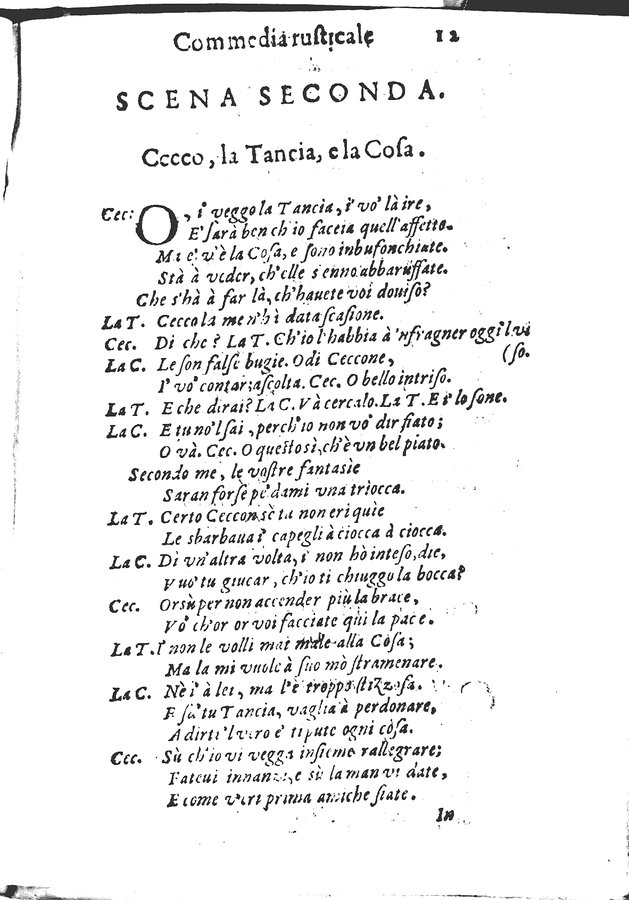 Commedia rusticale 12
SCENA SECONDA.
Ceceo, la Tancia, e la Cosa.
Cec: O, i' veggo la Tancia, i' vo' là ire,
E' sarà ben ch'io faccia quell'affetto.
Ma e' v'è la Cosa, e sono inbufonchiate.
Stà à veder, ch'elle s'enno abbaruffate.
Che s'hà à far là, ch'hauete voi douiso?
La T. Cecco la me n'hà data cascione.
Cec. Di che? La T. Ch'io l'habbia à 'nfragner oggi'l vi
La C. Le son false bugie. Odi Ceccone, (so.
I' vo' contar; ascolta. Cec. O bello intriso.
La T. E che dirai? La C. Và cercalo. La T. E i' lo sone.
La C. E tu no'l sai, perch'io non vo' dir fiato;
O và. Cec. O questo sì, ch'è vn bel piato.
Secondo me, le vostre fantasie
Saran forse pe' dami vna triocca.
La T. Certo Ceccon se tu non eri quie
Le sbarbaua i' capegli à ciocca à ciocca.
La C. Di vn'altra volta, i' non hò inteso, die,
Vuo' tu giucar, ch'io ti chiuggo la bocca?
Cec. Orsù per non accender più la brace,
Vo' ch'or or voi facciate qui la pace.
La T. I' non le volli mai male alla Cosa;
Ma la mi vuole à suo mò stramenare.
La C. Nè i' à lei, ma l'è troppo stizzosa.
E sa' tu Tancia, vaglia à perdonare,
A dirti'l vero e' ti pute ogni cosa.
Cec. Sù ch'io vi vegga insieme rallegrare;
Fateui innanzi, e sù la man vi date,
E come veri prima amiche siate.
In